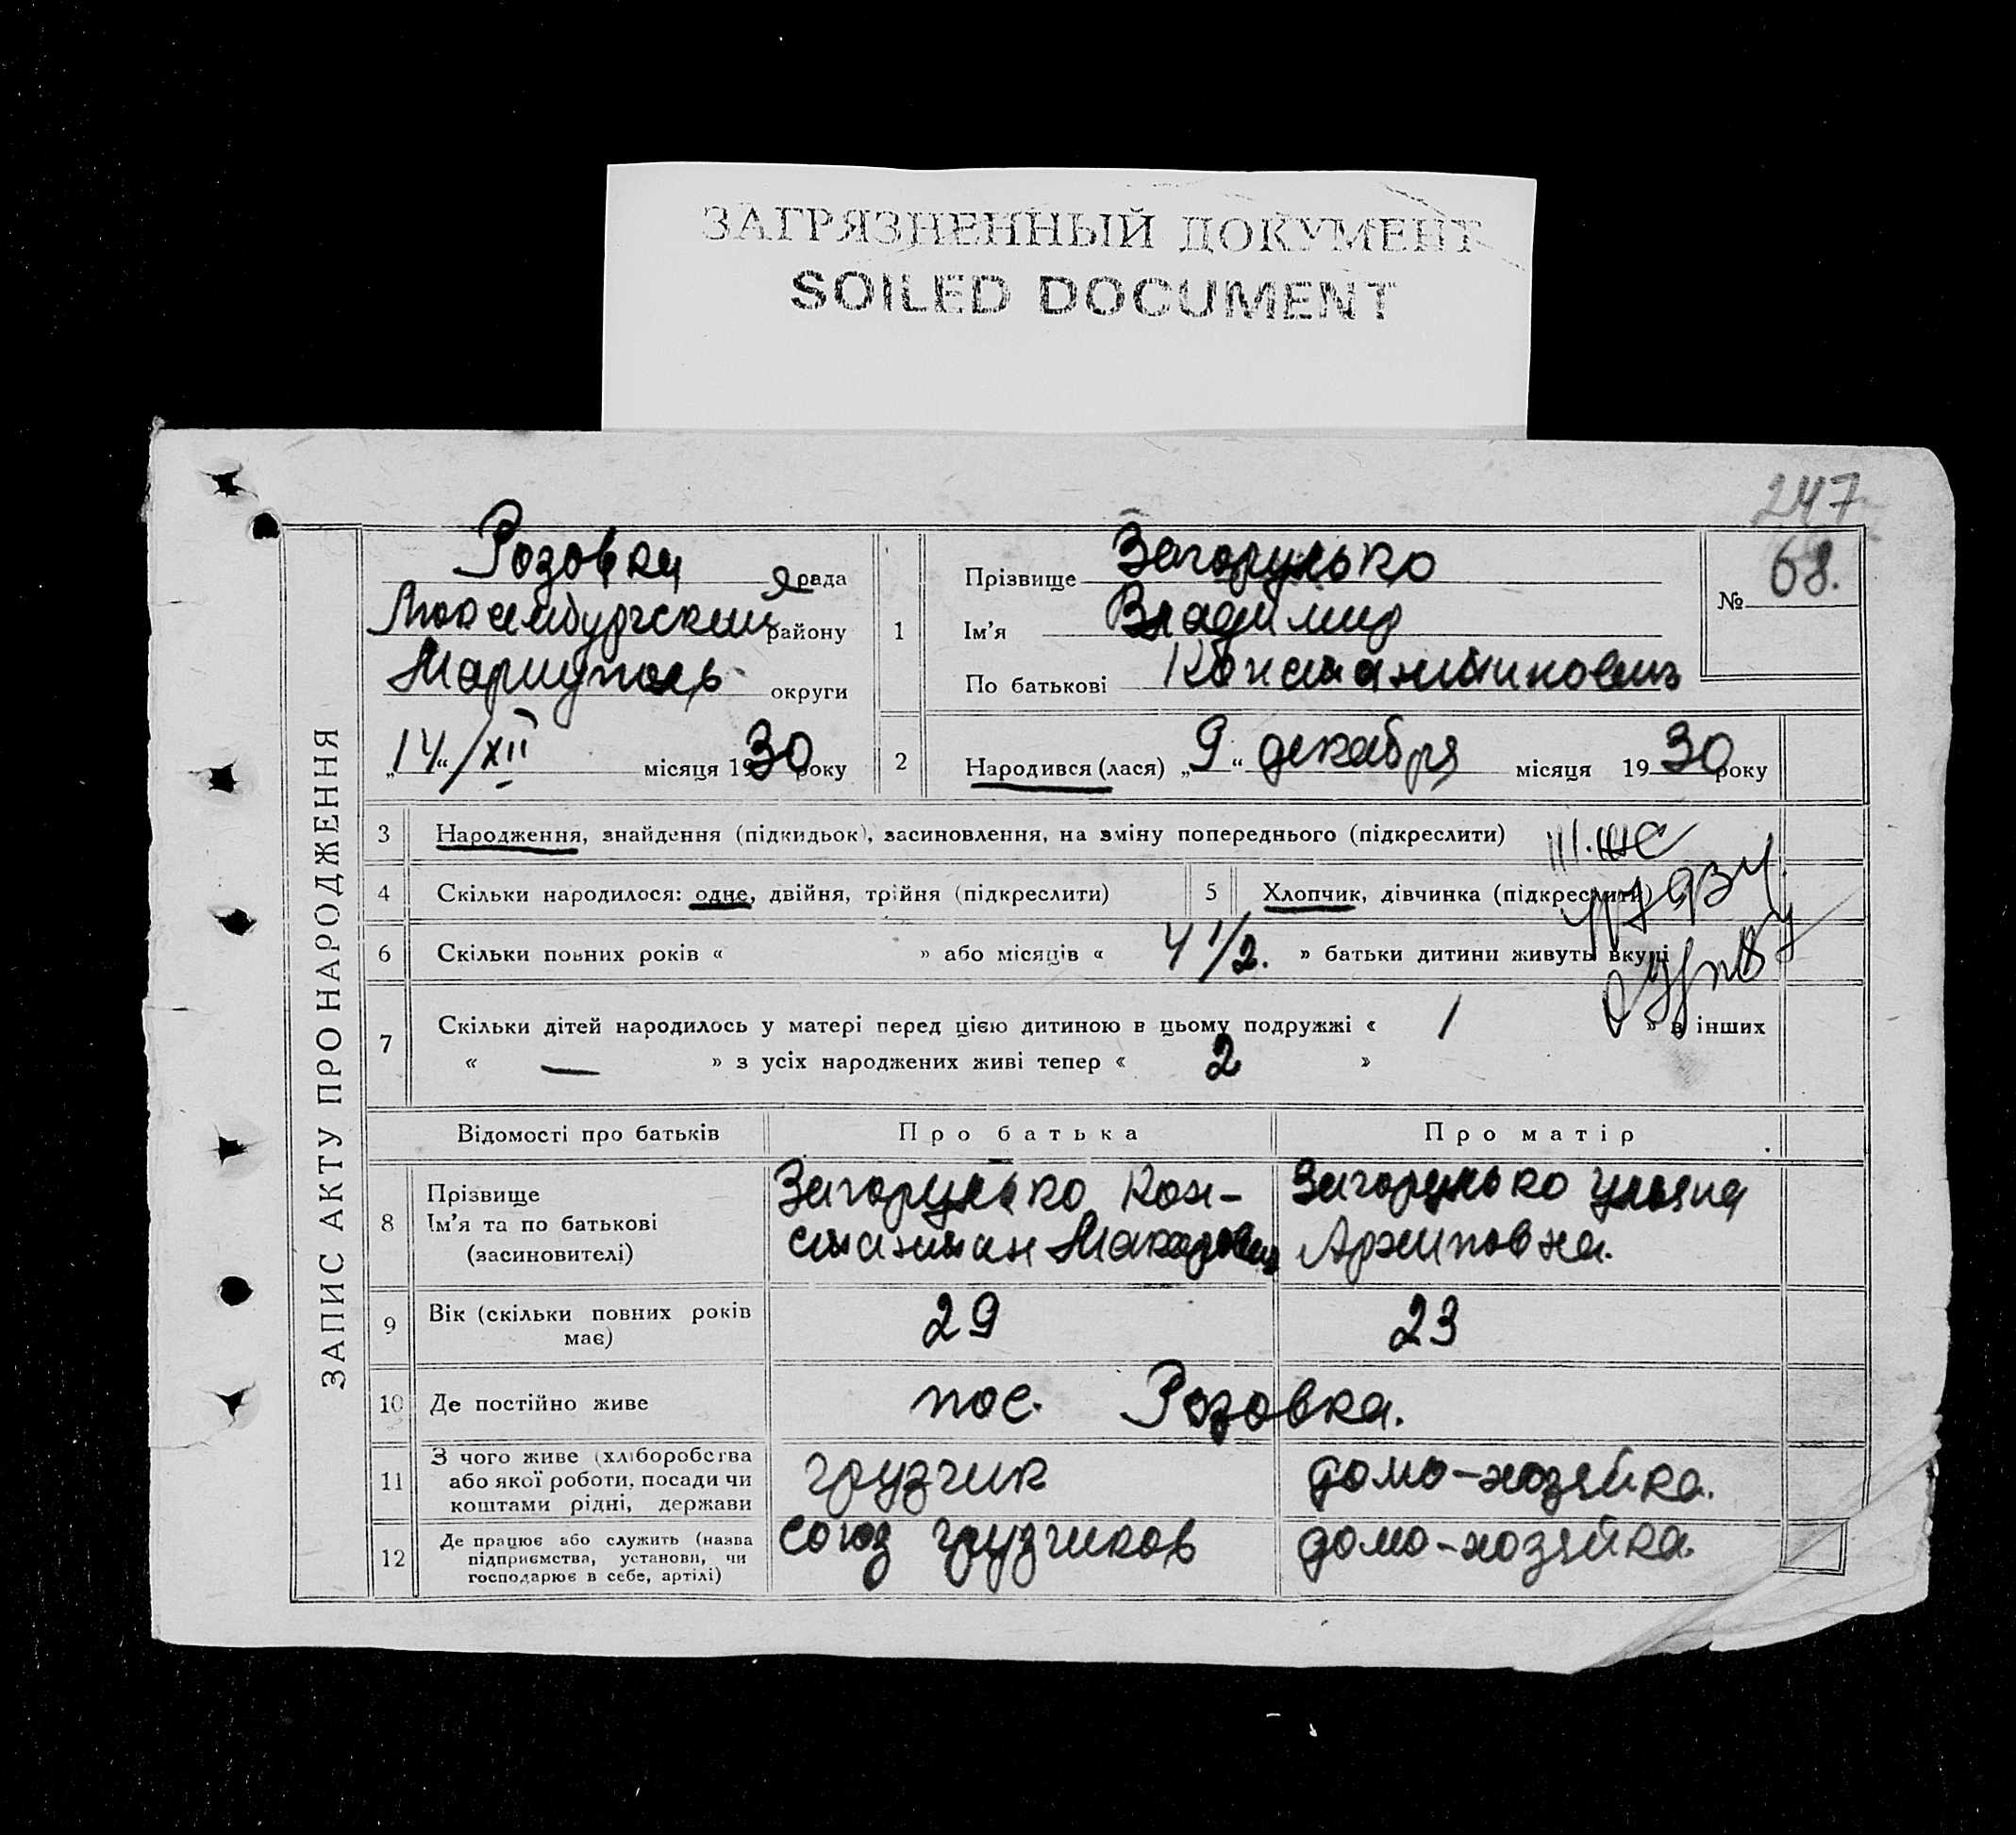 ЗАГРЯЗНЕННЫЙ ДОКУМЕНТ
SOILED DOCUMENT
247
ЗАПИС АКТУ ПРО НАРОДЖЕННЯ
Розовка я рада
Люксембургский району
Мариуполь округи
„14“/XII місяця 1930 року
1
Прізвище Загорулько
Ім’я Владимир
По батькові Константинович
№ 68.
2 Народився (лася) „9“ декабря місяця 1930 року
3 Народження, знайдення (підкидьок), засиновлення, на зміну попереднього (підкреслити)
4 Скільки народилося: одне, двійня, трійня (підкреслити)
5 Хлопчик, дівчинка (підкреслити)
6 Скільки повних років « » або місяців « 4 1/2. » батьки дитини живуть вкупі
7 Скільки дітей народилось у матері перед цією дитиною в цьому подружжі « 1 » в інших
« — » з усіх народжених живі тепер « 2 »
Відомості про батьків Про батька Про матір
8 Прізвище
Ім’я та по батькові
(засиновителі)
Загорулько Кон-
стантин Макарович
Загорулько Ульяна
Архиповна.
9 Вік (скільки повних років
має)
29 23
10 Де постійно живе пос. Розовка.
11 З чого живе (хліборобства
або якої роботи, посади чи
коштами рідні, держави
грузчик домо-хозяйка.
12 Де працює або служить (назва
підприємства, установи, чи
господарює в себе, артілі)
союз грузчиков домо-хозяйка.